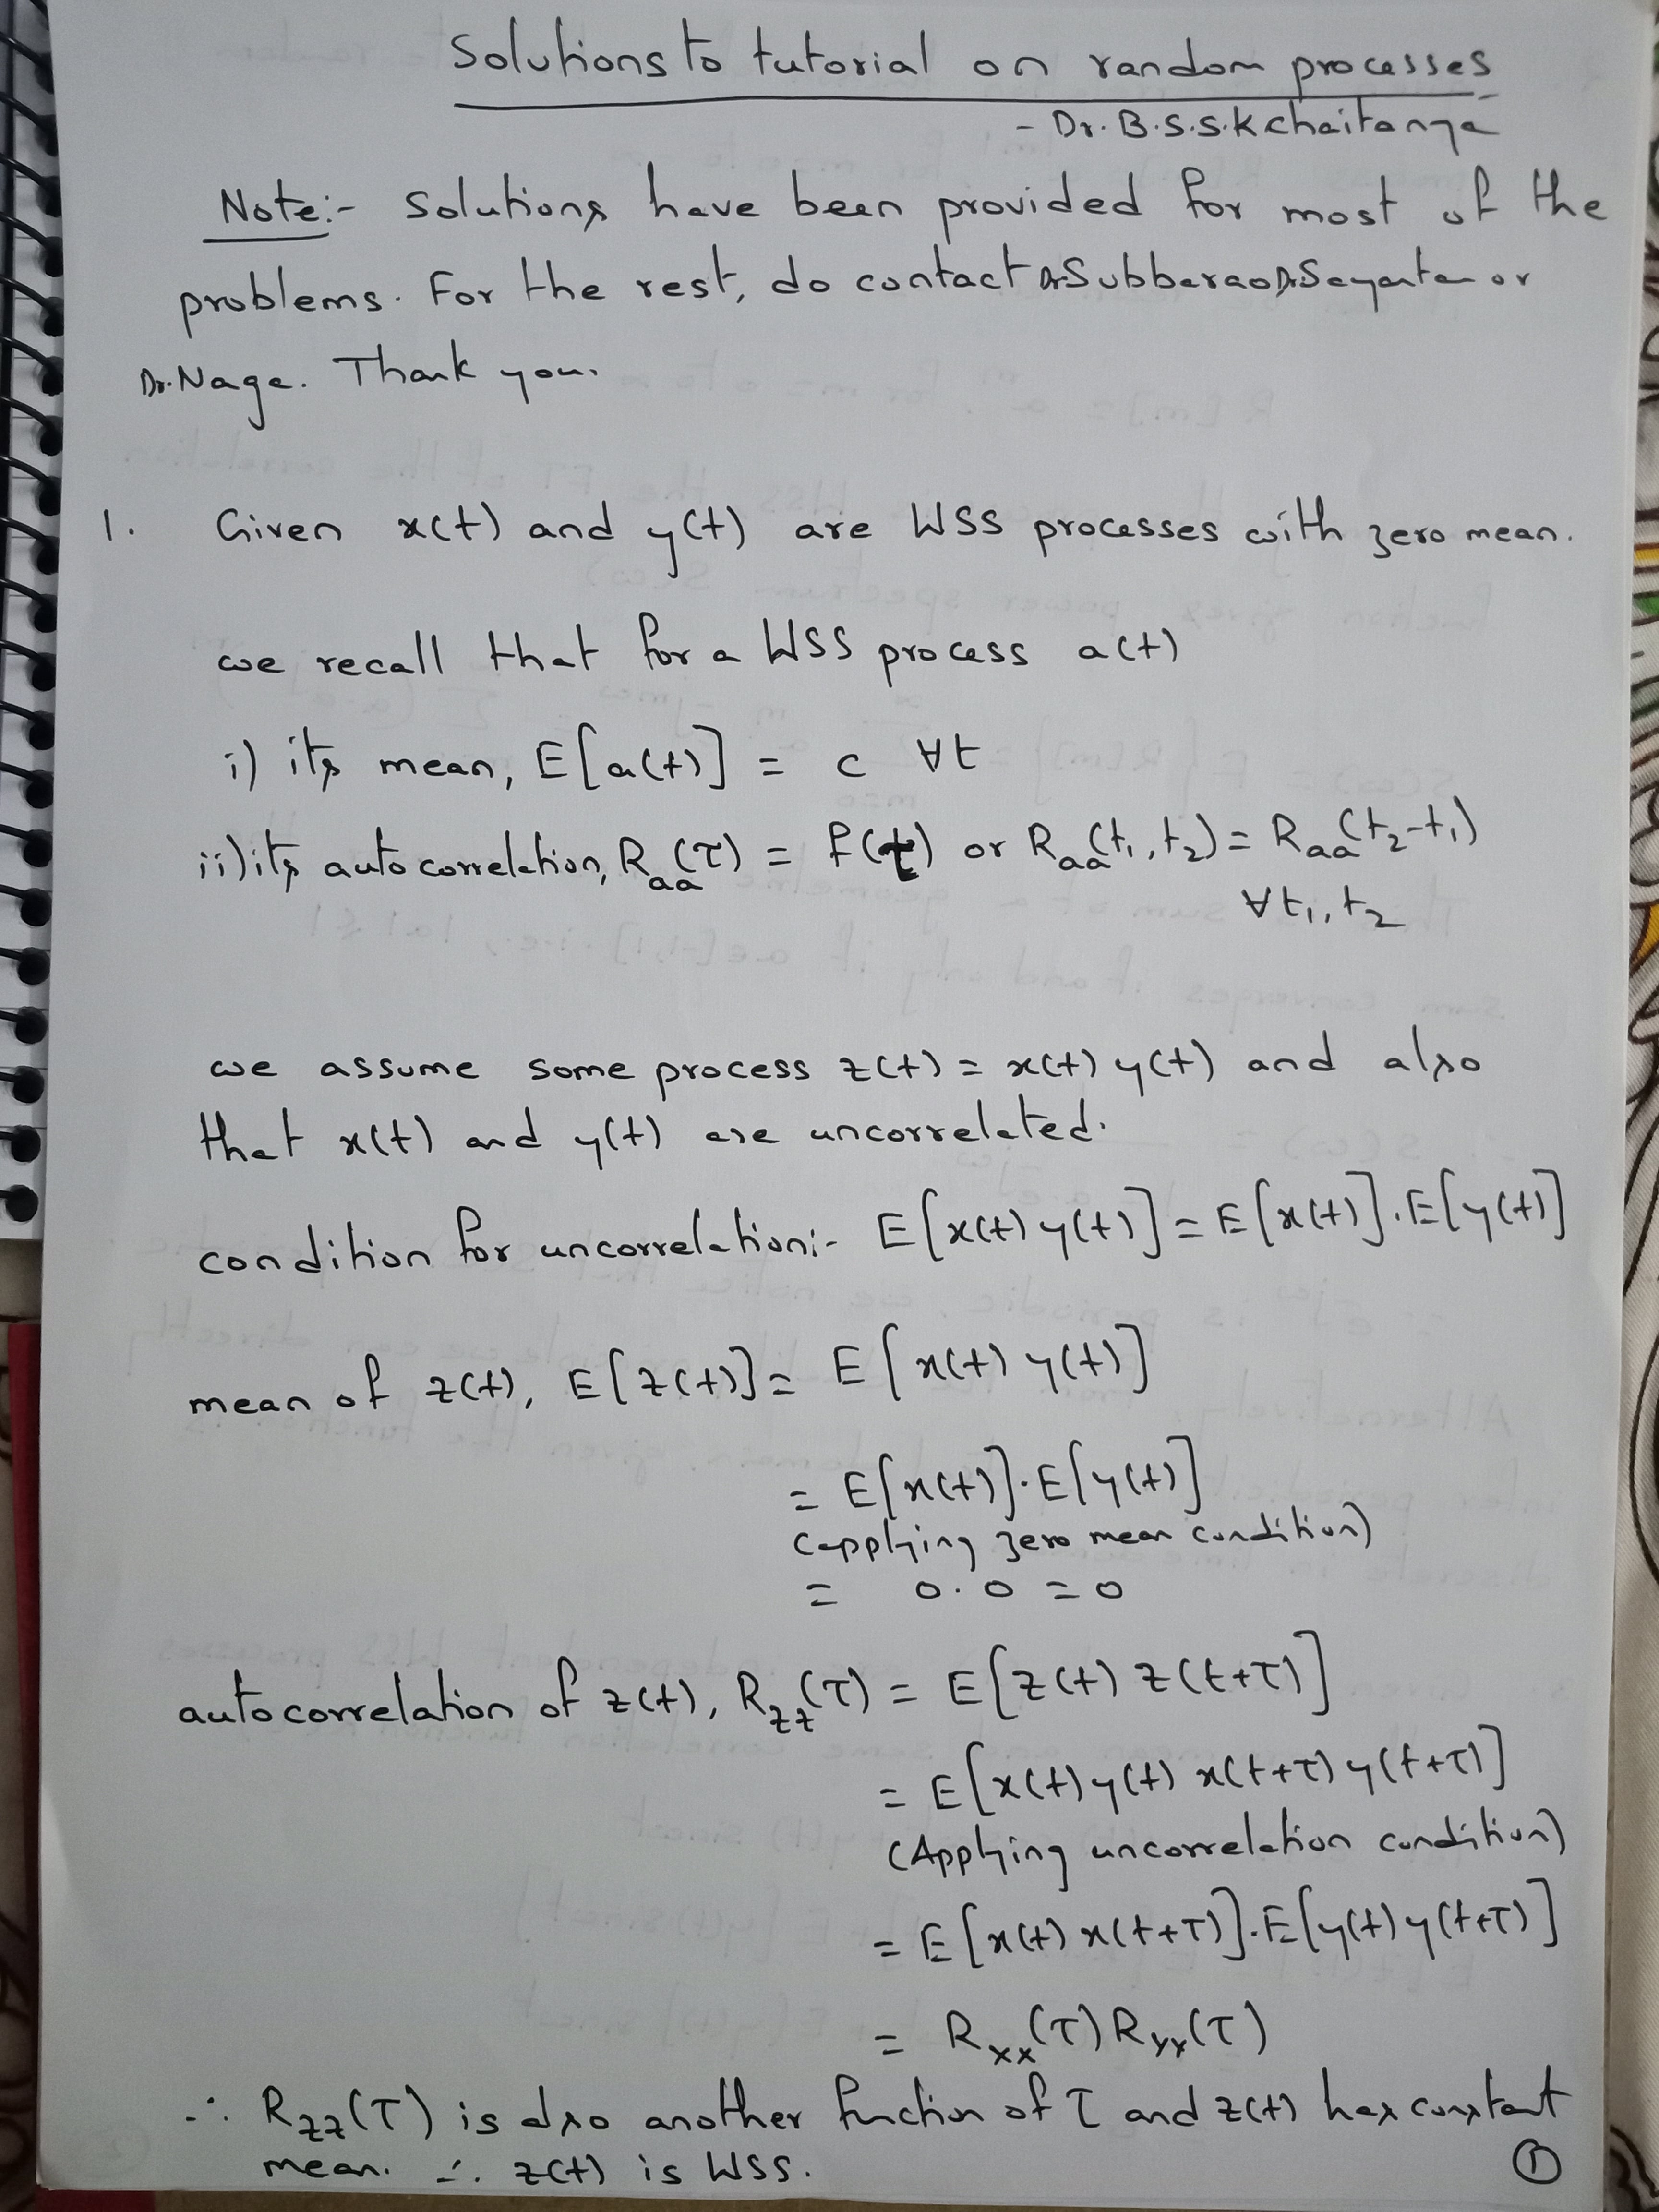 Solutions to tutorial on random processes
- Dr. B.S.S.K Chaitanya
Note:- Solutions have been provided for most of the
problems. For the rest, do contact Dr Subbarao, Dr Sayantan or
Dr. Naga. Thank you.
1. Given x(t) and y(t) are WSS processes with zero mean.
we recall that for a WSS process a(t)
i) its mean, E[a(t)] = c ∀t
ii) its autocorrelation, R_aa(τ) = f(τ) or R_aa(t₁, t₂) = R_aa(t₂-t₁)
∀ t₁, t₂
we assume some process z(t) = x(t) y(t) and also
that x(t) and y(t) are uncorrelated.
condition for uncorrelation:- E[x(t) y(t)] = E[x(t)].E[y(t)]
mean of z(t), E[z(t)] = E[x(t) y(t)]
= E[x(t)].E[y(t)]
(applying zero mean condition)
= 0.0 = 0
autocorrelation of z(t), R_zz(τ) = E[z(t) z(t+τ)]
= E[x(t) y(t) x(t+τ) y(t+τ)]
(Applying uncorrelation condition)
= E[x(t) x(t+τ)].E[y(t) y(t+τ)]
= R_xx(τ) R_yy(τ)
∴ R_zz(τ) is also another function of τ and z(t) has constant
mean. ∴ z(t) is WSS.
1